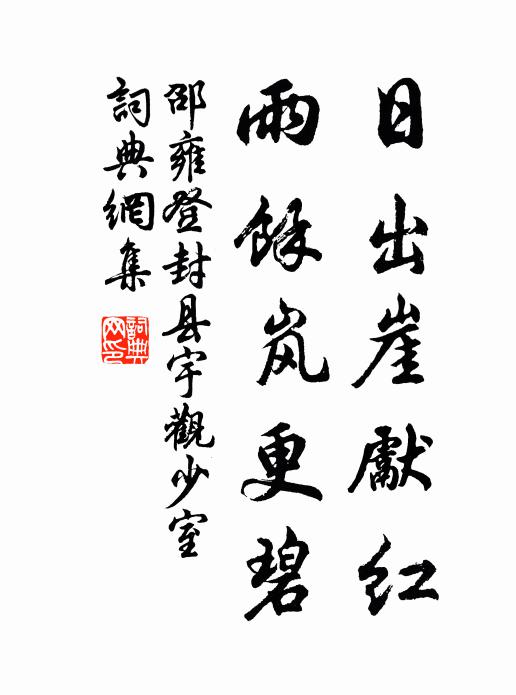 日出崖獻红
雨餘岚更碧
邵雍登封县宇觀少室
詞典網集
詞典网印